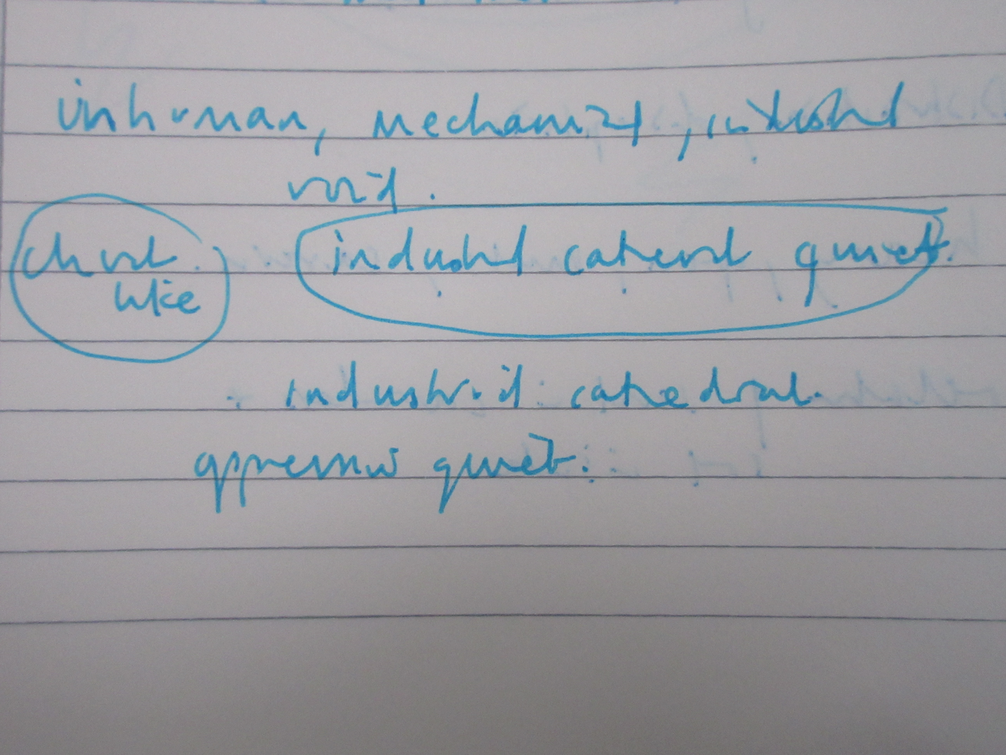 inhuman, mechanized, industrial
void.
church
like
industrial cathedral quiet.
industrial cathedral.
oppressive quiet.